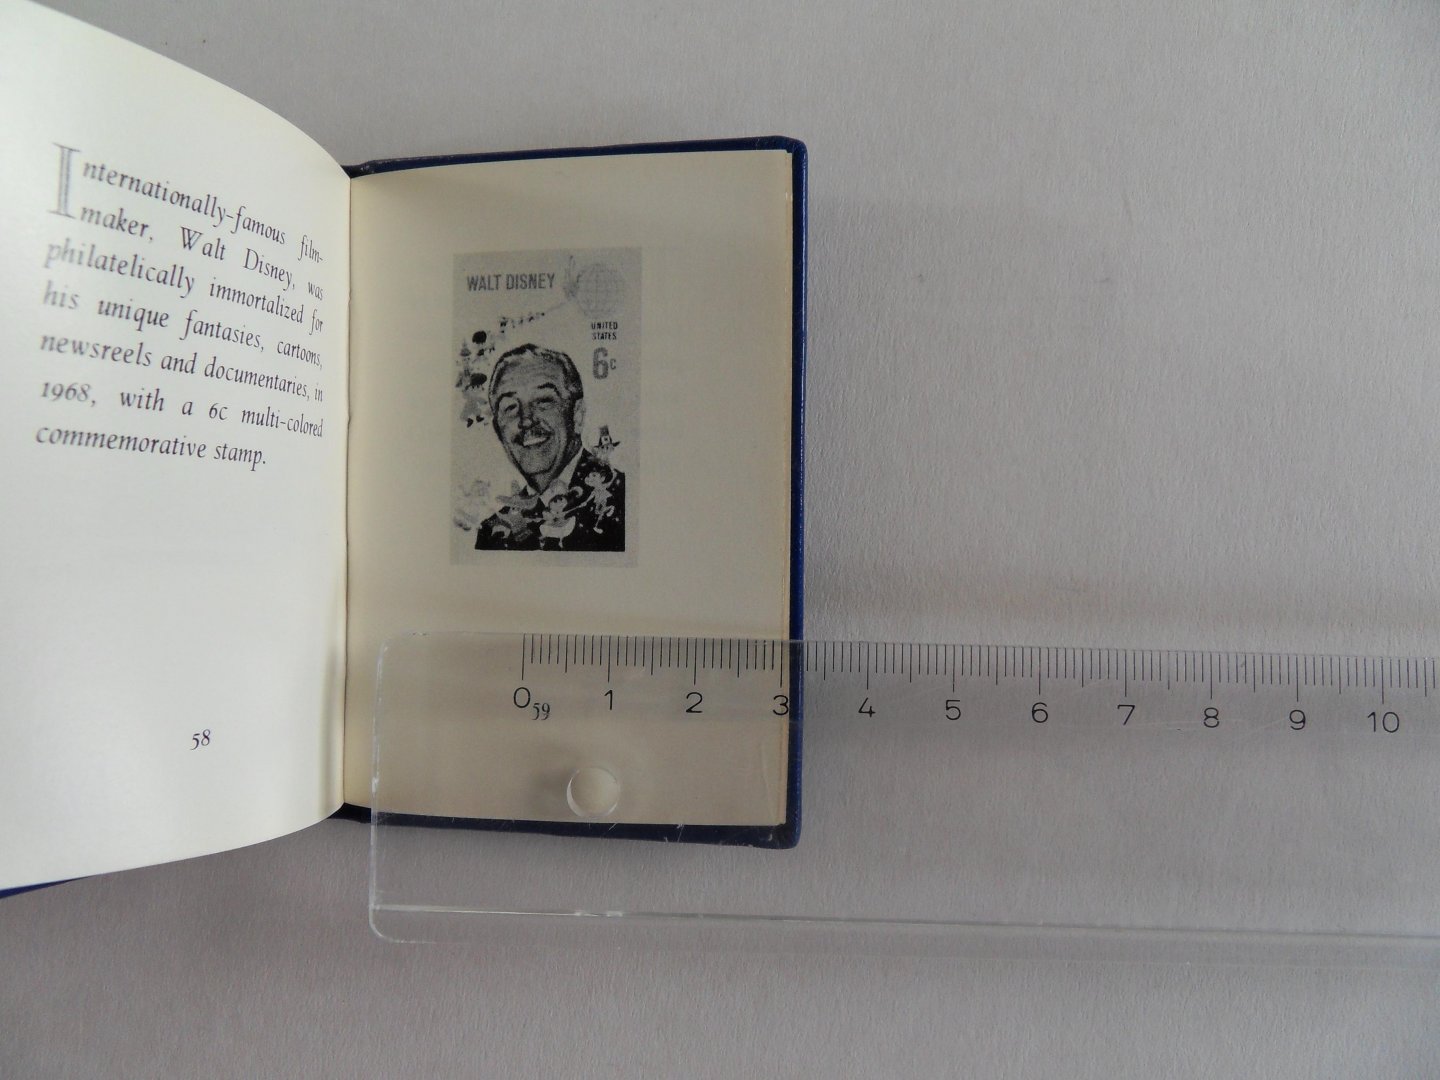 Internationally-famous film-
maker, Walt Disney, was
philatelically immortalized for
his unique fantasies, cartoons,
newsreels and documentaries, in
1968, with a 6c multi-colored
commemorative stamp.
58
WALT DISNEY
UNITED
STATES
6c
0 1 2 3 4 5 6 7 8 9 10
59